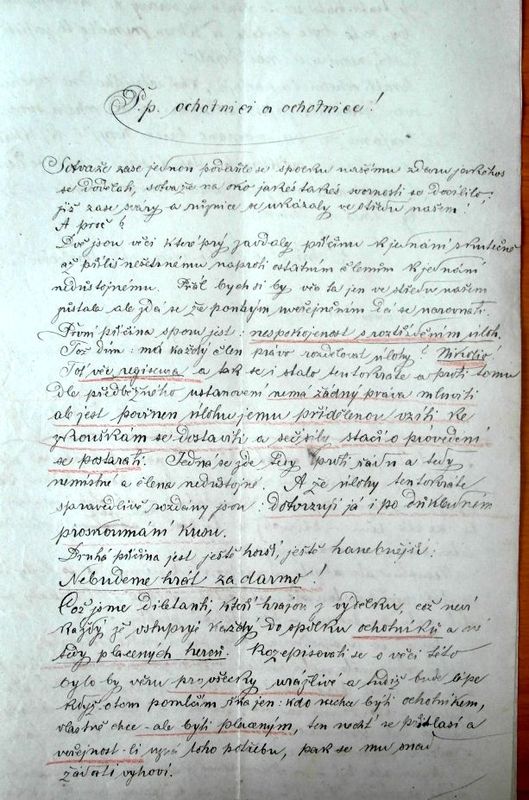 P. p. ochotníci a ochotnice!
Sotvaže zase jednou podařilo se spolku našemu zdaru jakéhos
se dodělat, sotva že na ono jakés takés svornosti se docílilo,
již zase sváry a různice se ukázaly ve středu našem!
A proč?
Dvě jsou věci které prý zavdaly příčinu k jednání skutečně
až příliš nešetrnému naproti ostatním členům k jednání
nedůstojnému. Přál bych si by věc ta jen ve středu našem
zůstala ale zdá se že pouhým uveřejněním dá se narovnati.
První příčina sporu jest: nespokojenost s roztříděním úloh.
Tož dím: má každý člen právo rozdělovat úlohy? Nikoliv.
Toť věc regisseura a tak se i stalo tentokráte a proti tomu
dle předběžného ustanovení nemá žádný práva mluviti
ale jest povinen úlohu jemu přidělenou vzíti ke
zkouškám se dostaviti a seč síly stačí o provedení
se postarati. Jedná se zde tedy proti řádu a tedy
nemístně a člena nedůstojně. A že úlohy tentokráte
spravedlivě rozdány jsou: dotvrzuji já i po důkladném
proskoumání kusu.
Druhá příčina jest ještě horší, ještě hanebnější:
Nebudeme hrát za darmo!
Což jsme diletanti, kteří hrajou z výdělku, což neví
každý že vstupuje každý do spolku ochotníků a ne
tedy placených herců. Rozepisovati se o věci této
bylo by věru prosěcky urážlivé a tudíž bude lépe
když o tom pomlčím řka jen: kdo nechce býti ochotníkem,
vlastně chce-ale býti placeným, ten nechť se přihlásí a
veřejnost-li uzná toho potřebu, pak se mu snad
žádosti vyhoví.